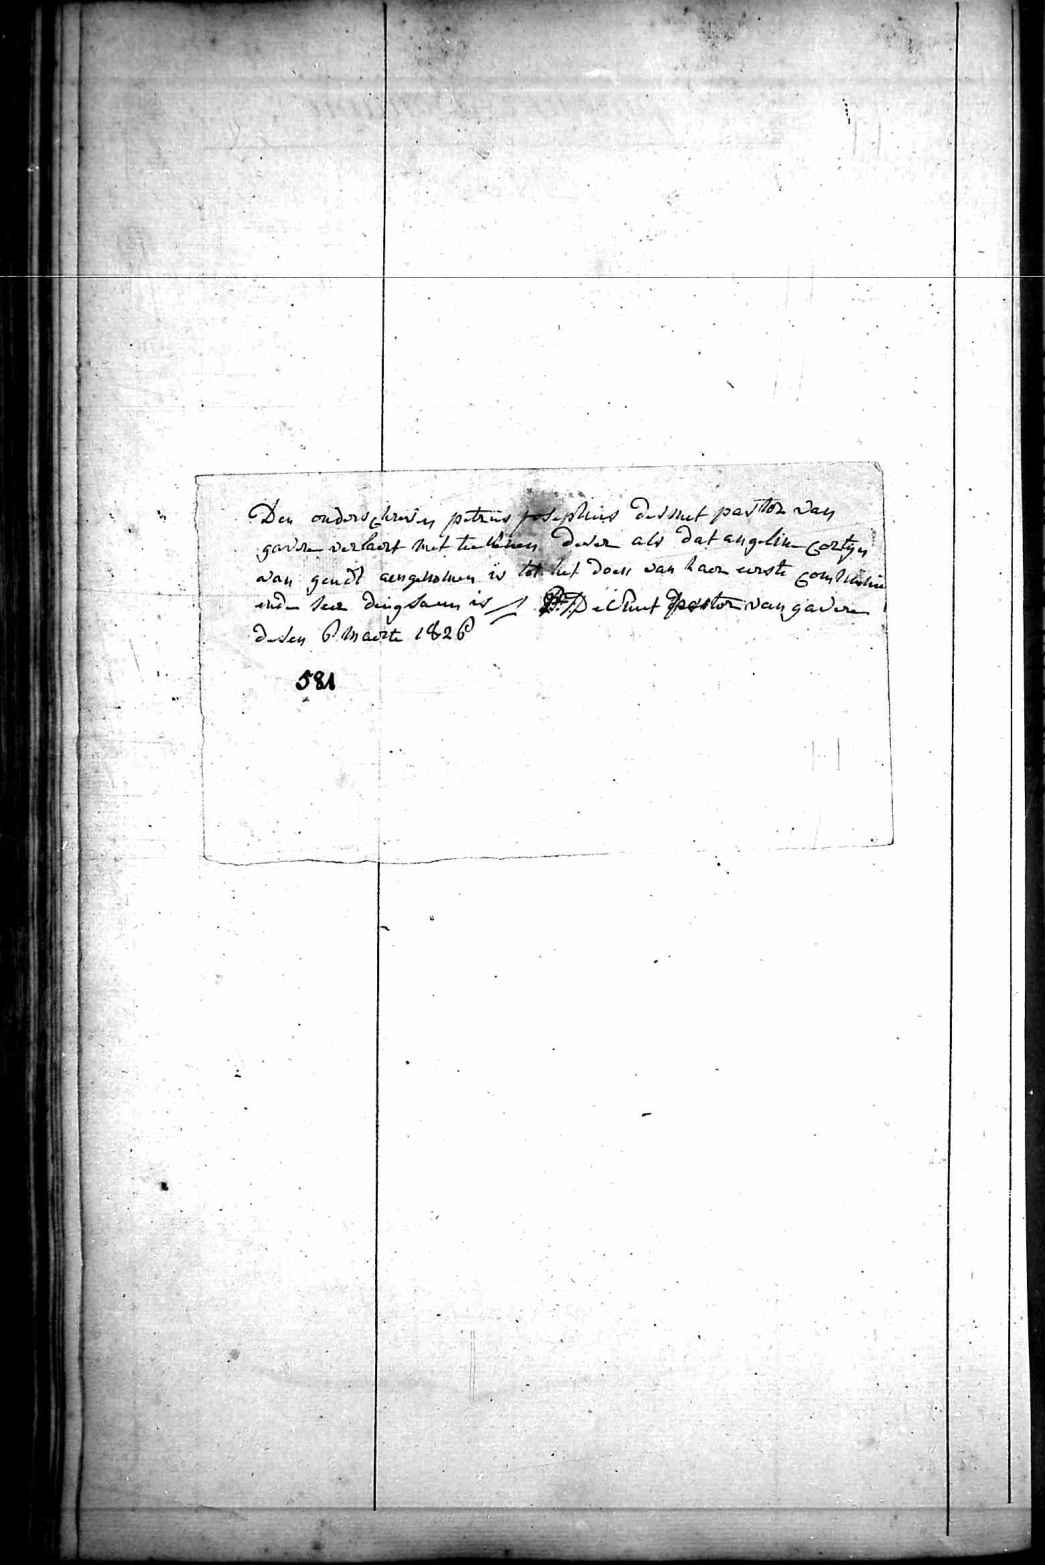 Den onderschreven petrus josephus desmet pastor van
gavre verklaert met teekenen deser als dat angeline cortyn
van gendt aengenomen is tot het doen van haer eerste communie
ende seer deugsaem is P. J. De Smet pastor van gavere
desen 6 maerte 1826
581